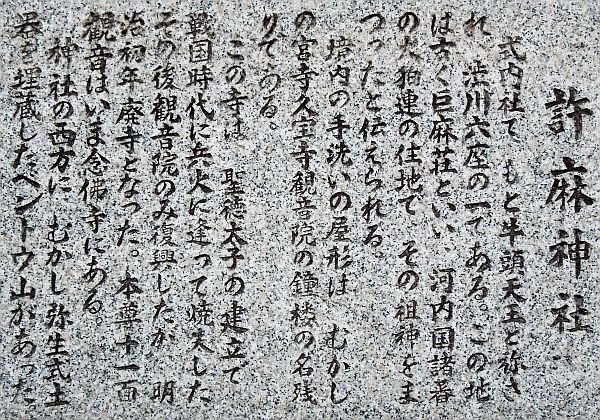 許麻神社
式内社で、もと牛頭天王と称さ
れ、渋川六座の一である。この地
は古く巨麻荘といい、河内国諸蕃
の大狛連の住地で、その祖神をま
つったと伝えられる。
境内の手洗いの屋形は、むかし
の宮寺久宝寺観音院の鐘楼の名残
りである。
この寺は、聖徳太子の建立で
戦国時代に兵火に逢って焼失した
その後観音院のみ復興したが、明
治初年廃寺となった。本尊十一面
観音はいま念佛寺にある。
神社の西方に、むかし弥生式土
器を埋蔵したベントウ山があった